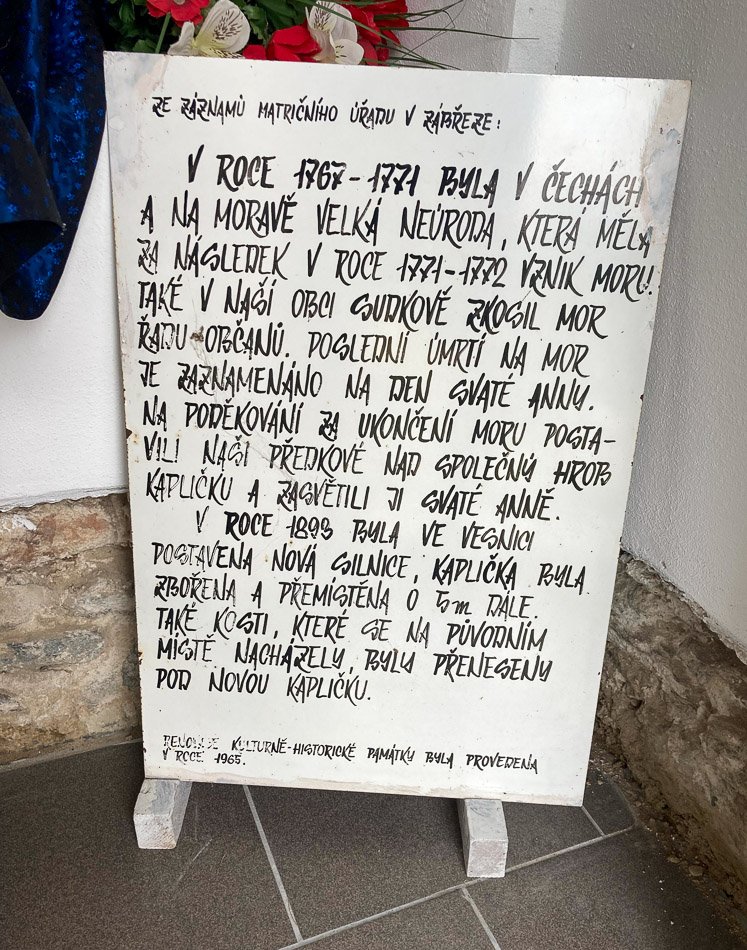 ZE ZÁZNAMŮ MATRIČNÍHO ÚŘADU V ZÁBŘEZE:
V ROCE 1767-1771 BYLA V ČECHÁCH
A NA MORAVĚ VELKÁ NEÚRODA, KTERÁ MĚLA
ZA NÁSLEDEK V ROCE 1771-1772 VZNIK MORU!
TAKÉ V NAŠÍ OBCI SUDKOVĚ ZKOSIL MOR
ŘADU OBČANŮ. POSLEDNÍ ÚMRTÍ NA MOR
JE ZAZNAMENÁNO NA DEN SVATÉ ANNY.
NA PODĚKOVÁNÍ ZA UKONČENÍ MORU POSTA-
VILI NAŠI PŘEDKOVÉ NAD SPOLEČNÝ HROB
KAPLIČKU A ZASVĚTILI JI SVATÉ ANNĚ.
V ROCE 1893 BYLA VE VESNICI
POSTAVENA NOVÁ SILNICE, KAPLIČKA BYLA
ZBOŘENA A PŘEMÍSTĚNA O 5m DÁLE.
TAKÉ KOSTI, KTERÉ SE NA PŮVODNÍM
MÍSTĚ NACHÁZELY, BYLY PŘENESENY
POD NOVOU KAPLIČKU.
RENOVACE KULTURNĚ-HISTORICKÉ PAMÁTKY BYLA PROVEDENA
V ROCE 1965.